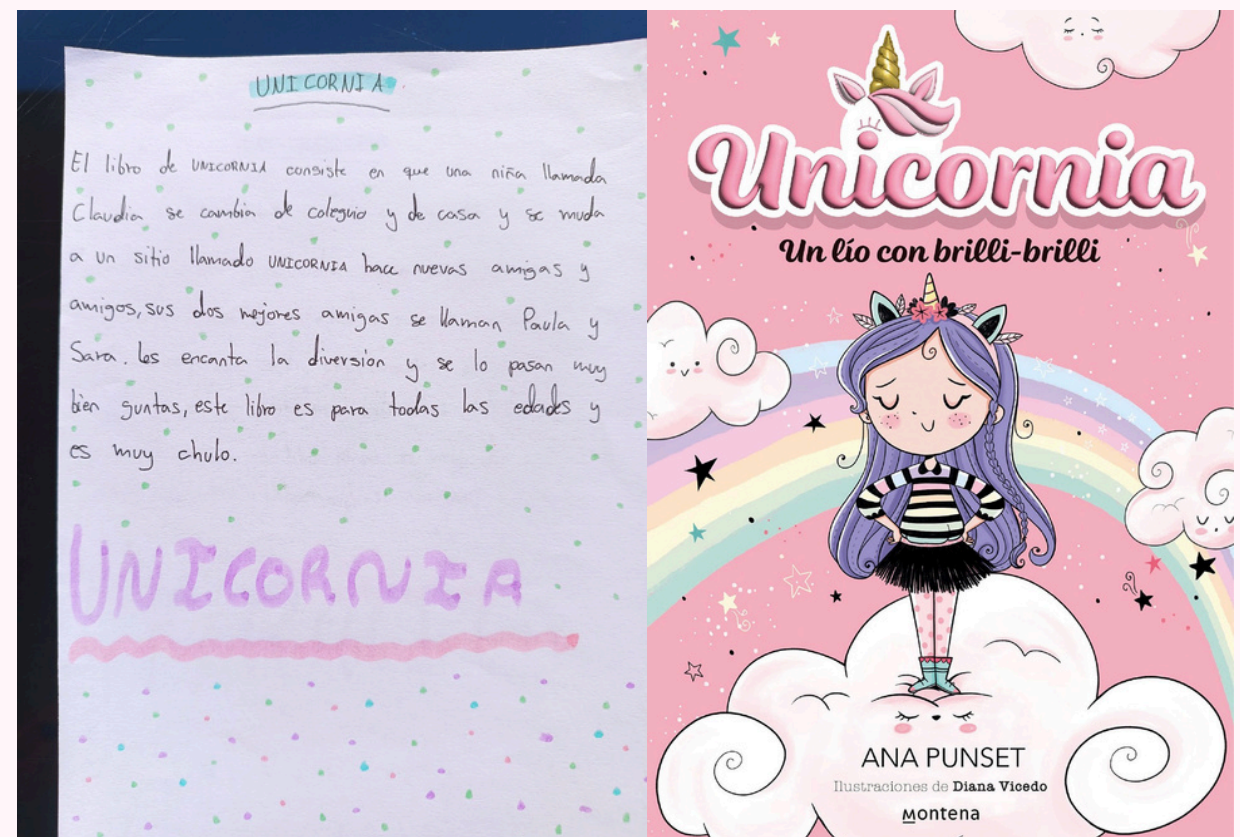 UNICORNIA
El libro de UNICORNIA consiste en que una niña llamada
Claudia se cambia de coleguio y de casa y se muda
a un sitio llamado UNICORNIA hace nuevas amigas y
amigos, sus dos mejores amigas se llaman Paula y
Sara. Les encanta la diversión y se lo pasan muy
bien guntas, este libro es para todas las edades y
es muy chulo.
UNICORNIA
Unicornia
Un lío con brilli-brilli
ANA PUNSET
Ilustraciones de Diana Vicedo
Montena